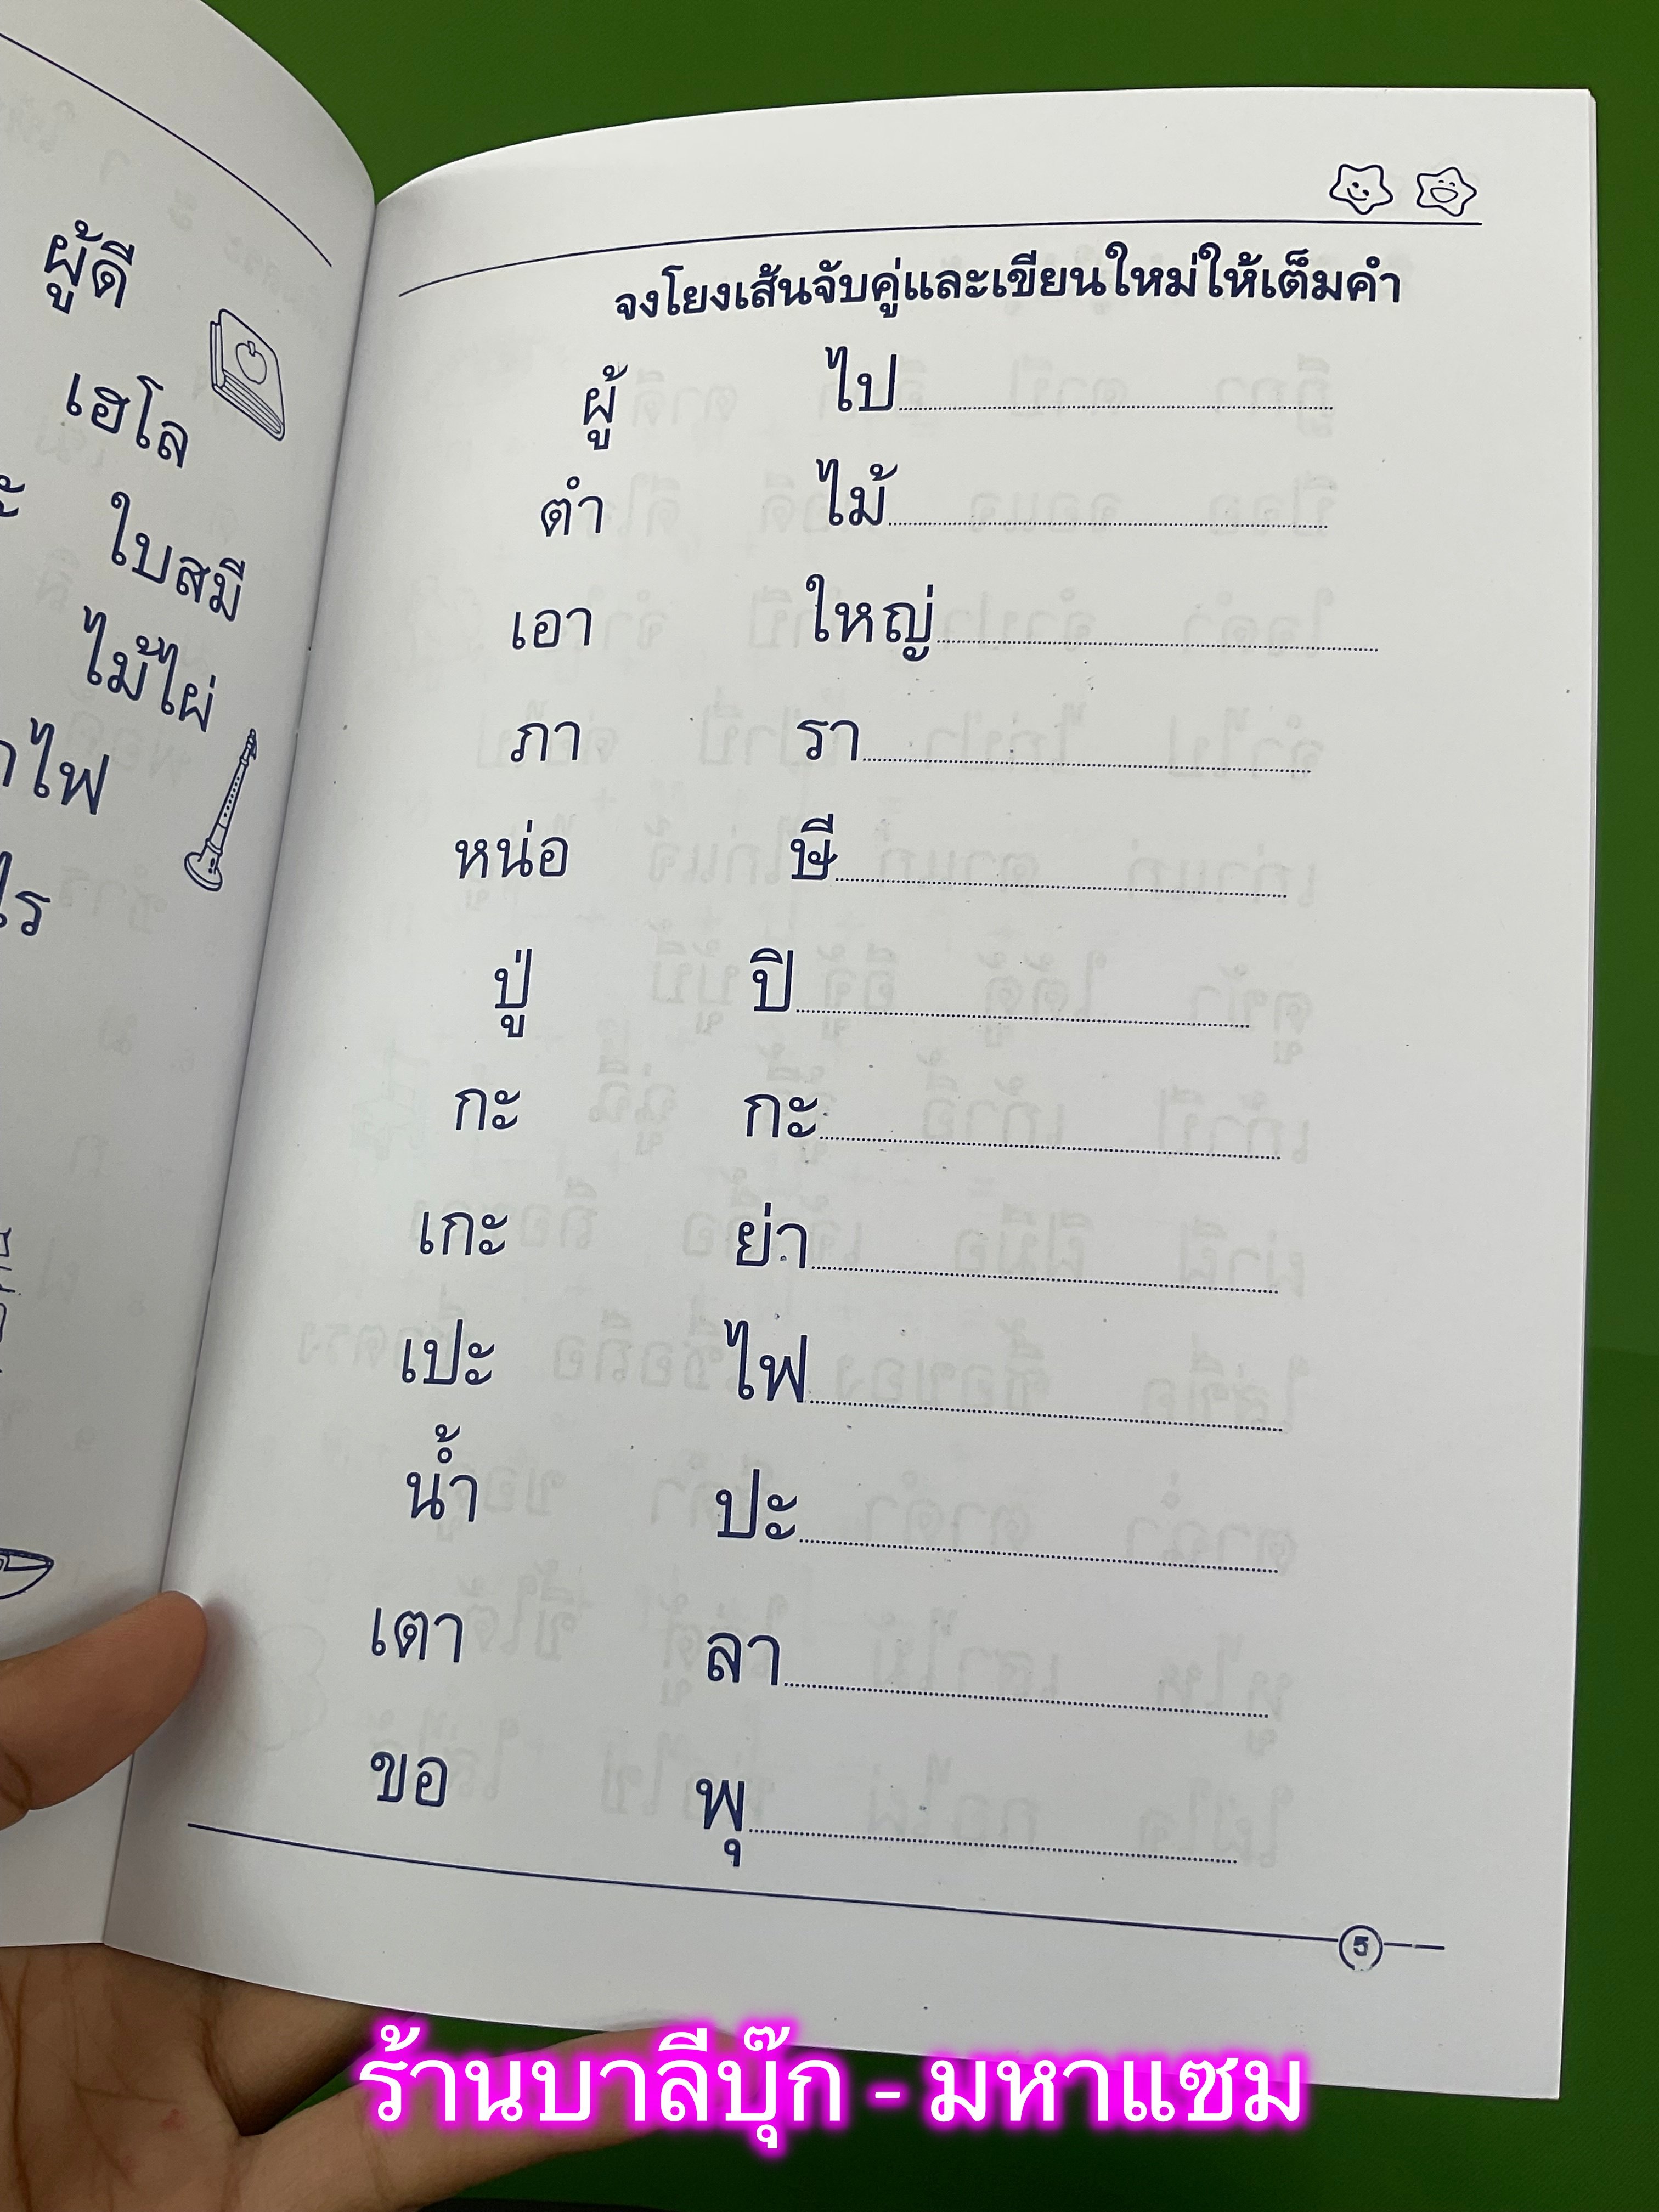 ผู้ดี
เฮโล
ใบสมี
ไม้ไผ่
จงโยงเส้นจับคู่และเขียนใหม่ให้เต็มคำ
ผู้ ไป
ตำ ไม้
เอา ใหญ่
ภา รา
หน่อ ษี
ปู่ ปิ
กะ กะ
เกะ ย่า
เปะ ไฟ
น้ำ ปะ
เตา ลา
ขอ พุ
5
ร้านบาลีบุ๊ก - มหาแซม